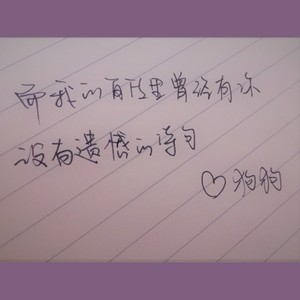 而我的里曾经有你
没有遗憾的诗句
♡狗狗